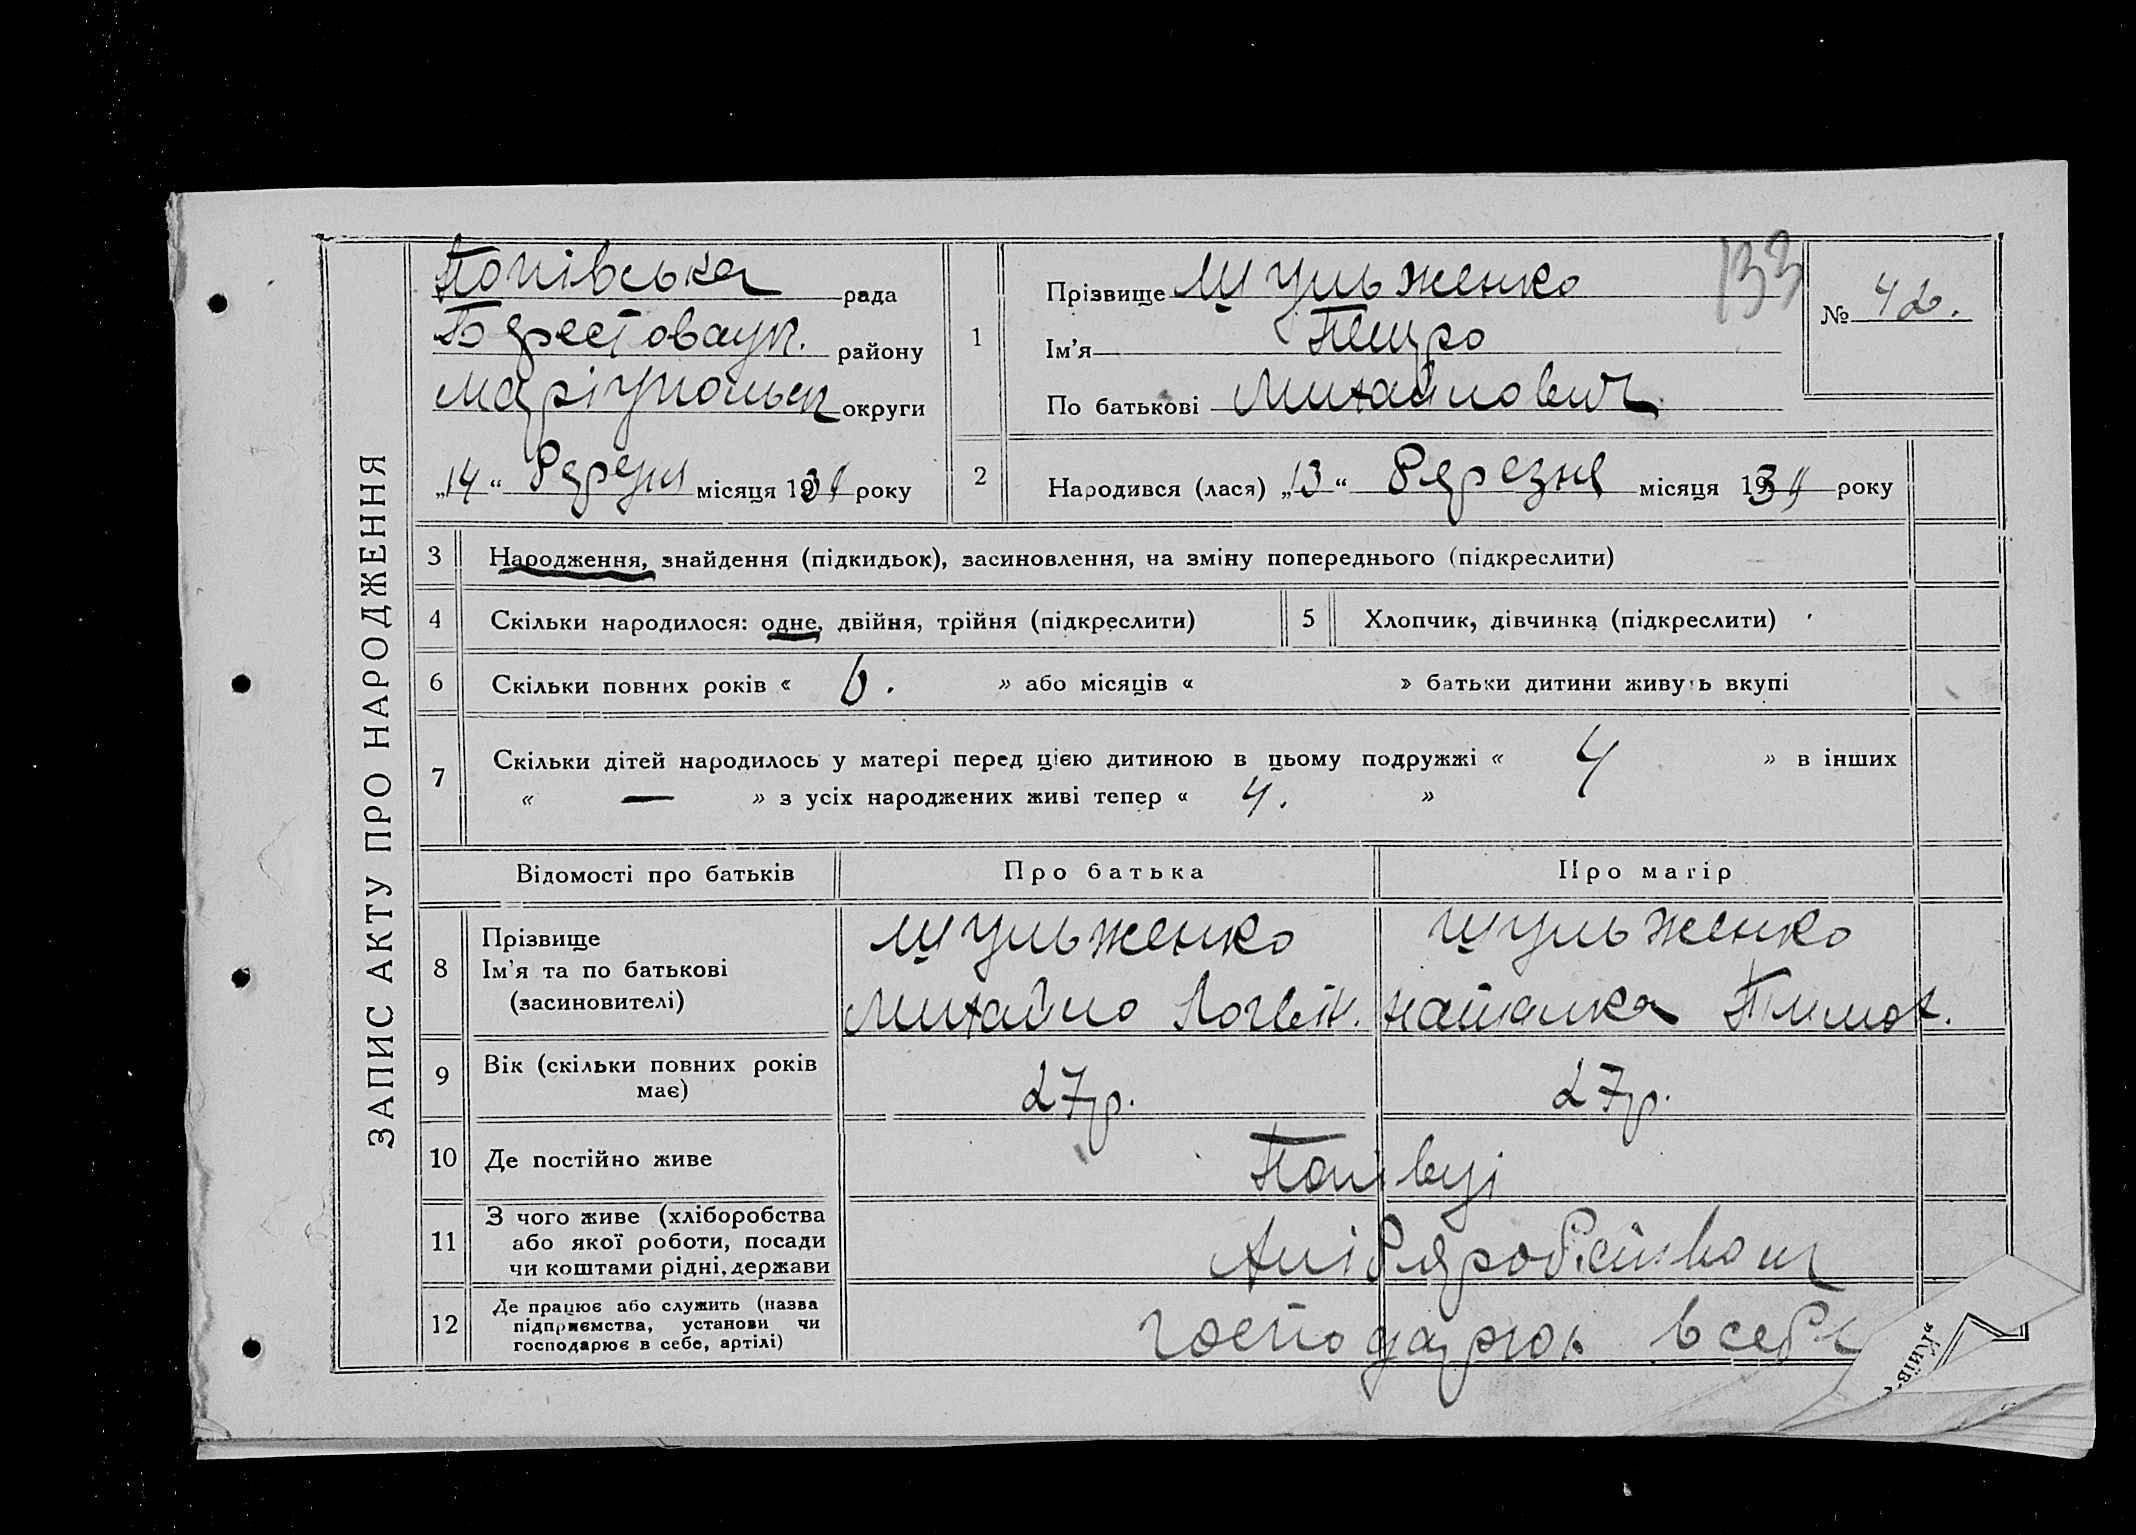 ЗАПИС АКТУ ПРО НАРОДЖЕННЯ
Попівська рада
Берестоваць. району
Маріупольськ округи
„14“ Березня місяця 1931 року
133
№ 42.
1
Прізвище Шульженко
Ім’я Петро
По батькові Михайлович
2
Народився (лася) „13“ Березня місяця 1931 року
3 Народження, знайдення (підкидьок), засиновлення, на зміну попереднього (підкреслити)
4 Скільки народилося: одне, двійня, трійня (підкреслити) 5 Хлопчик, дівчинка (підкреслити)
6 Скільки повних років « 6. » або місяців « » батьки дитини живуть вкупі
7 Скільки дітей народилось у матері перед цією дитиною в цьому подружжі « 4 » в інших
« — » з усіх народжених живі тепер « 4. »
Відомості про батьків Про батька Про матір
8 Прізвище
Ім’я та по батькові
(засиновителі)
Шульженко
Михайло Логвін.
Шульженко
Наталка Тимох.
9 Вік (скільки повних років
має)
27 р. 27 р.
10 Де постійно живе Попівці
11 З чого живе (хліборобства
або якої роботи, посади
чи коштами рідні, держави
Хліборобством
12 Де працює або служить (назва
підприємства, установи чи
господарює в себе, артілі)
господарює в себе
„Київ-